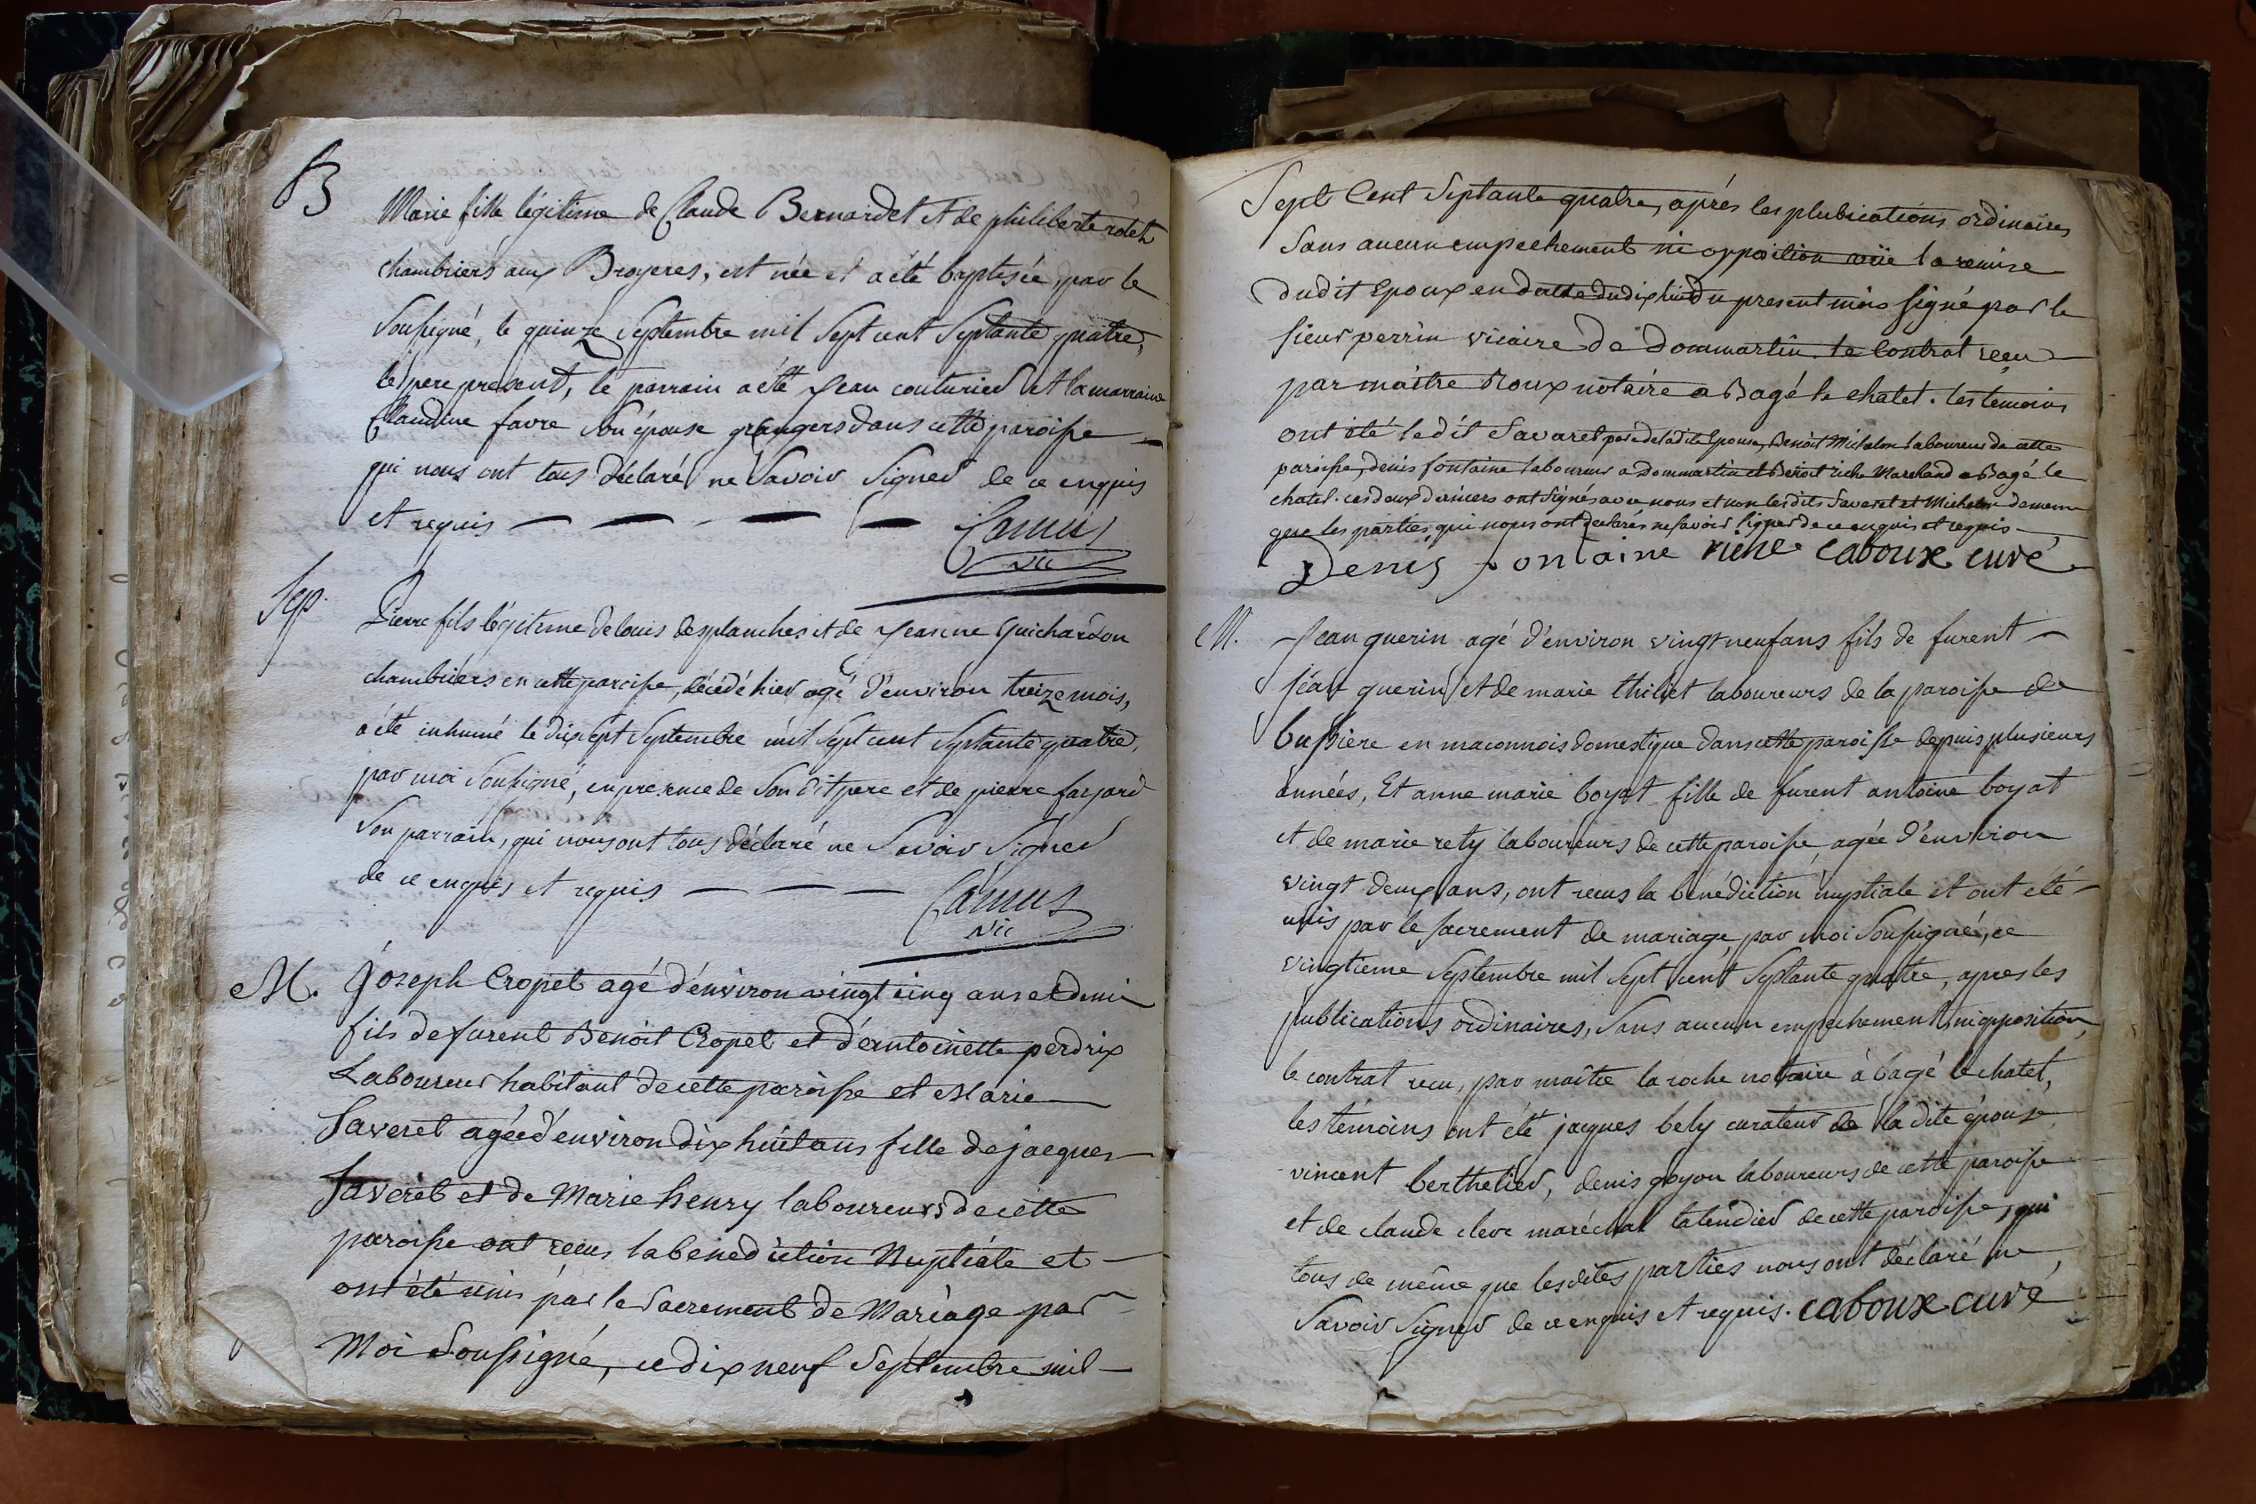 B
Marie fille légitime de Claude Bernardet et de philiberte rolet
chambriers aux Broyeres, est née et a été baptisée, par le
Soussigné, le quinze Septembre mil Sept cent Septante quatre,
le pere present, le parrain a été Jean couturier et la marraine
Claudine favre Son épouse grangers dans cette paroisse
qui nous ont tous déclaré ne Savoir Signer de ce enquis
et requis Camus
vic
Sep.
Pierre fils légitime de louis desplanches et de Jeanne Guichardon
chambriers en cette paroisse, décédé hier agé d'environ treize mois,
a été inhumé le dixsept Septembre mil Sept cent Septante quatre,
par moi Soussigné, en presence de Son dit pere et de pierre farjard
Son parrain, qui nous ont tous déclaré ne Savoir Signer
de ce enquis et requis Camus
vic
M. Joseph Cropet agé d'environ vingt cinq ans et demi
fils de furent Benoit Cropet et d'antoinette perdrix
Laboureur habitant de cette paroisse et Marie
Saveret agée d'environ dix huit ans fille de jacques
Saveret et de Marie henry laboureurs de cette
paroisse ont reçus la benediction Nuptiale et
ont été unis par le Sacrement de Mariage par
Moi Soussigné, ce dix neuf Septembre mil
Sept Cent Septante quatre, après les plubications ordinaires
Sans aucun empechement ni opposition vüe la remise
dudit Epoux en datte du dix huit du present mois signé par le
sieur perrin vicaire de Dommartin. le Contrat reçu
par maître Roux notaire a Bagé le chatel. les temoins
ont été ledit Savaret pere de la dite Epouse, Benoit Michelon laboureur de cette
paroisse, denis fontaine laboureur a Dommartin et Benoit riche Marchand a Bagé le
chatel. ces deux derniers ont signés avec nous et non lesdits Saveret et Michelon de mem
que les parties, qui nous ont declarés ne savoir signer de ce enquis et requis
Denis fontaine riche caboux curé
M. Jean guerin agé d'environ vingt neuf ans fils de furent
jean guerin et de marie thiliet laboureurs de la paroisse de
bussiere en maconnois domestique dans cette paroisse depuis plusieurs
années, Et anne marie boyat fille de furent antoine boyat
et de marie rety laboureurs de cette paroisse, agée d'environ
vingt deux ans, ont recus la bénédiction nuptiale et ont été
unis par le sacrement de mariage, par moi Soussigné, ce
vingtieme Septembre mil Sept cent Septante quatre, apres les
publications ordinaires, Sans aucun empechement ni opposition,
le contrat recu, par maître la roche notaire à bagé le chatel,
les témoins ont été jacques bely curateur de la dite épouse,
vincent berthelier, denis goyon laboureurs de cette paroisse
et de claude cleve maréchal de cette paroisse, qui
tous de même que lesdites parties nous ont déclaré ne
Savoir Signer de ce enquis et requis. caboux curé